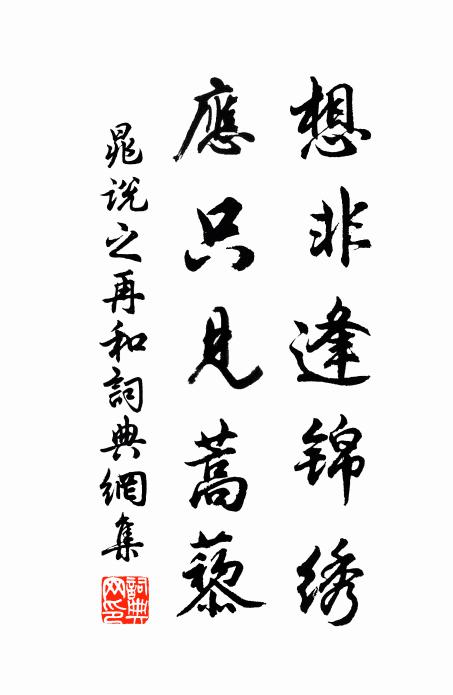 想非逢锦绣
應只見蒿藜
晁说之再和詞典網集
詞典網印